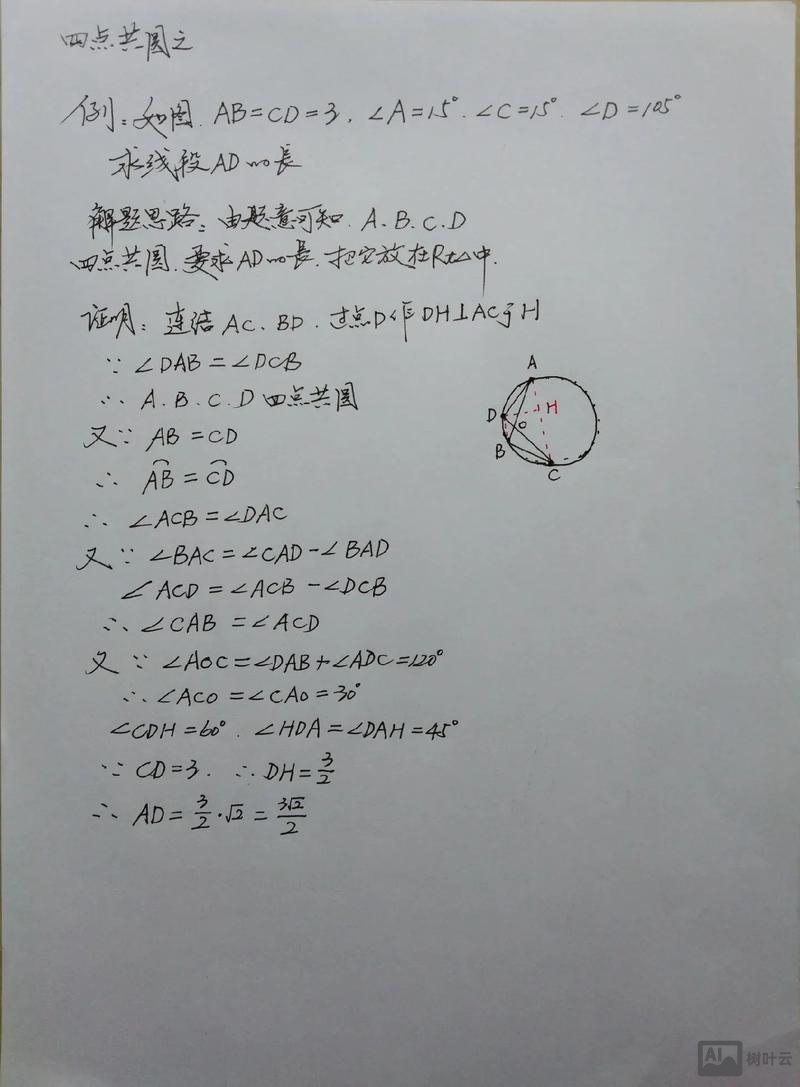 四点共圆之
例:如图.AB=CD=3,∠A=15°.∠C=15°.∠D=105°
求线段AD的長
解题思路:由题意可知.A.B.C.D
四点共圆.要求AD的長.把它放在Rt△中.
证明:连结AC、BD.过点D作DH⊥AC于H
∵∠DAB=∠DCB
∴A.B.C.D四点共圆
又∵AB=CD
∴AB⌒=CD⌒
∴∠ACB=∠DAC
又∵∠BAC=∠CAD-∠BAD
∠ACD=∠ACB-∠DCB
∴∠CAB=∠ACD
又∵∠AOC=∠DAB+∠ADC=120°
∴∠ACO=∠CAO=30°
∠CDH=60°.∠HDA=∠DAH=45°
∵CD=3.∴DH=3/2
∴AD=3/2·√2=3√2/2
A
D
H
O
B
C
AI
树叶云